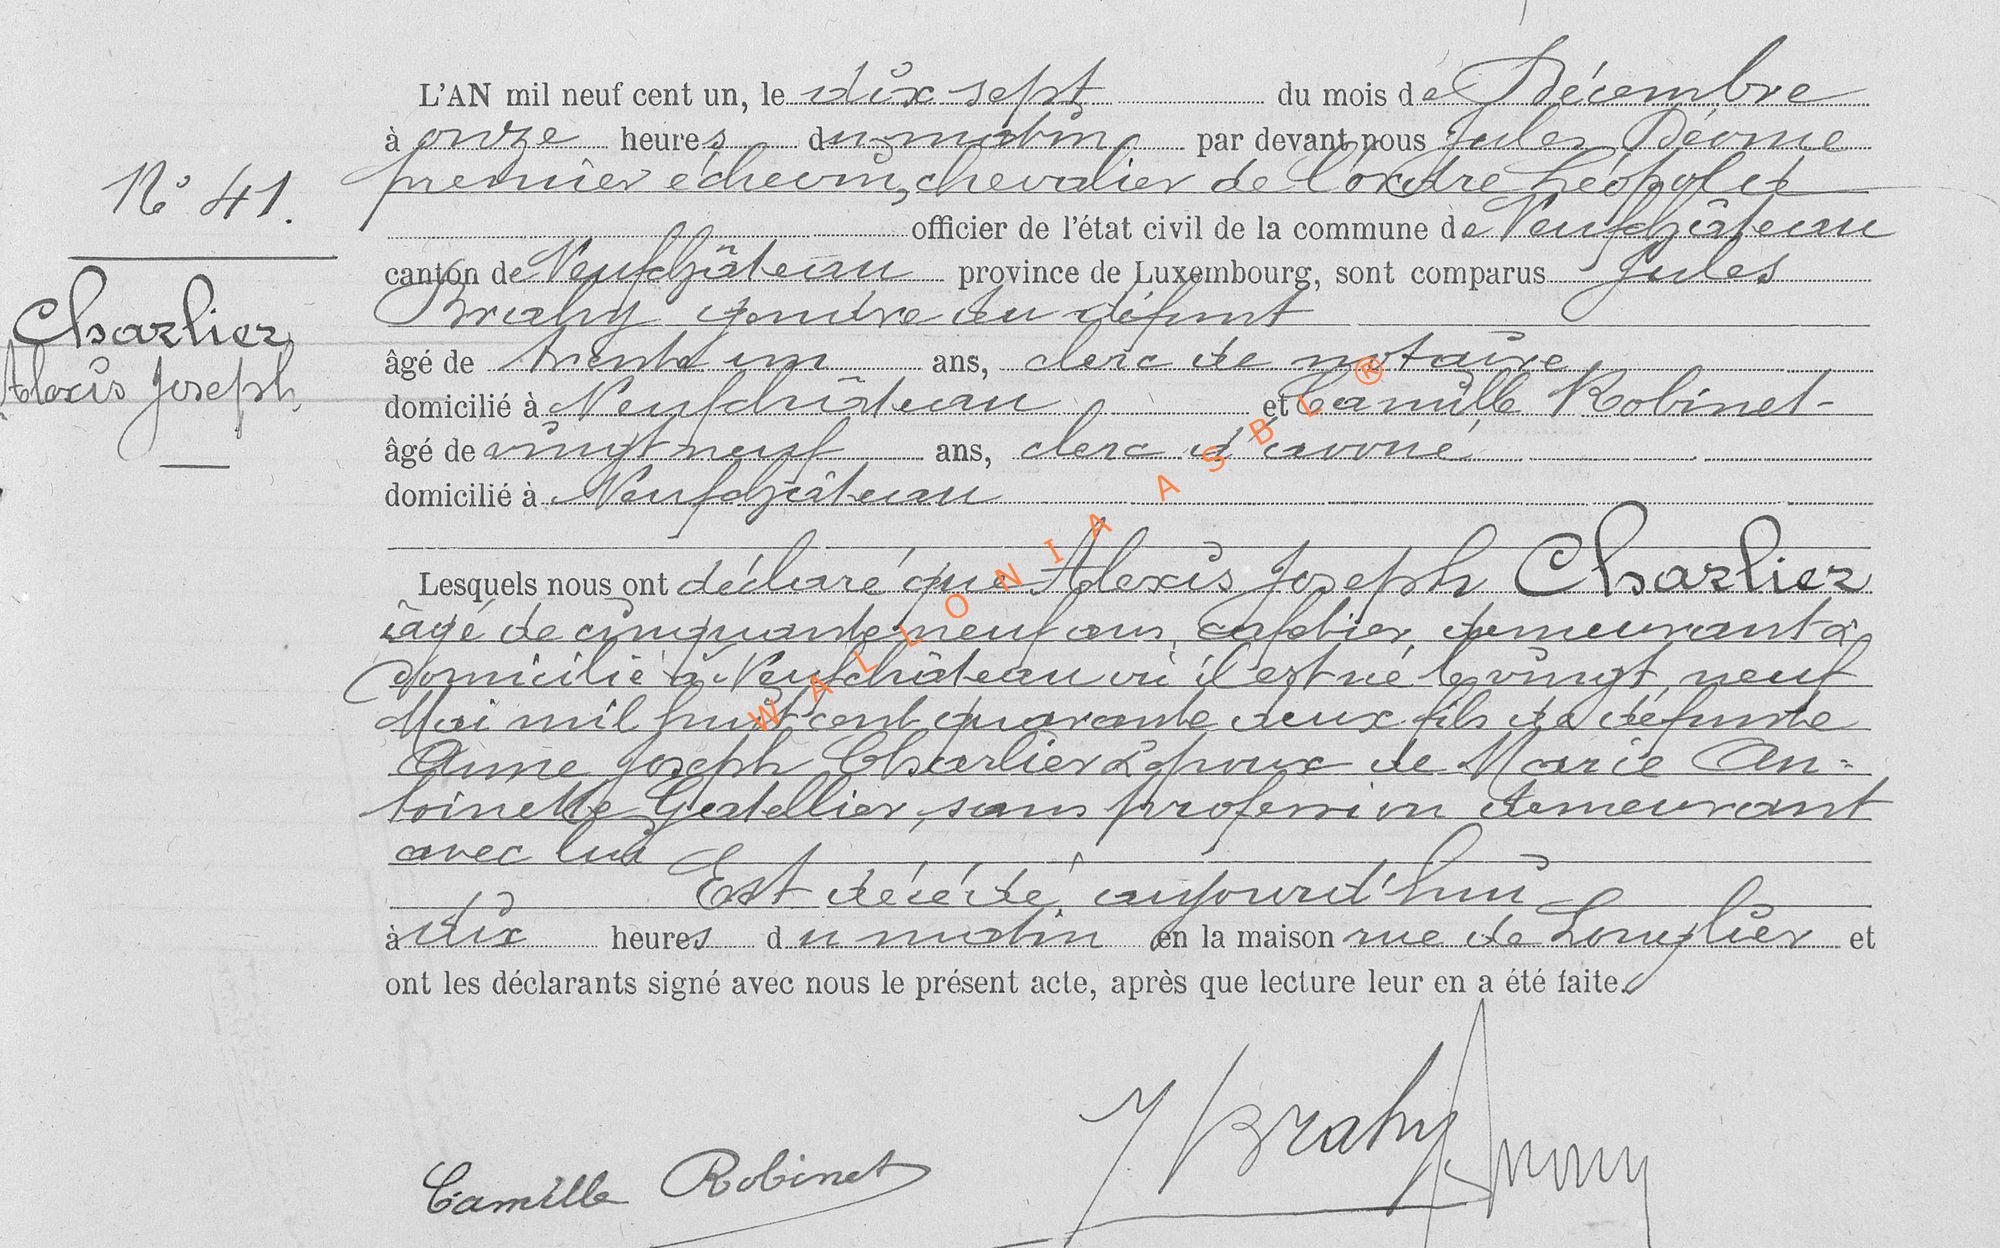 L'AN mil neuf cent un, le dix sept du mois de Décembre
à onze heures du matin par devant nous Jules Déome
premier échevin, chevalier de l'ordre Léopold
officier de l'état civil de la commune de Neufchâteau
canton de Neufchâteau province de Luxembourg, sont comparus Jules
Brahy gendre du défunt
âgé de trente un ans, clerc de notaire
domicilié à Neufchâteau et Camille Robinet
âgé de vingt neuf ans, clerc d'avoué
domicilié à Neufchâteau
N° 41.
Charlier
Alexis Joseph
Lesquels nous ont déclaré que Alexis Joseph Charlier
âgé de cinquante neuf ans, cafetier, demeurant &
domicilié à Neufchâteau où il est né le vingt neuf
Mai mil huit cent quarante deux fils de défunte
Anne Joseph Charlier & époux de Marie An=
toinette sans profession demeurant
avec lui
Est décédé aujourd'hui
à dix heures du matin en la maison rue de Longlier et
ont les déclarants signé avec nous le présent acte, après que lecture leur en a été faite.
Camille Robinet
J Brahy
WALLONIA ASBL ®